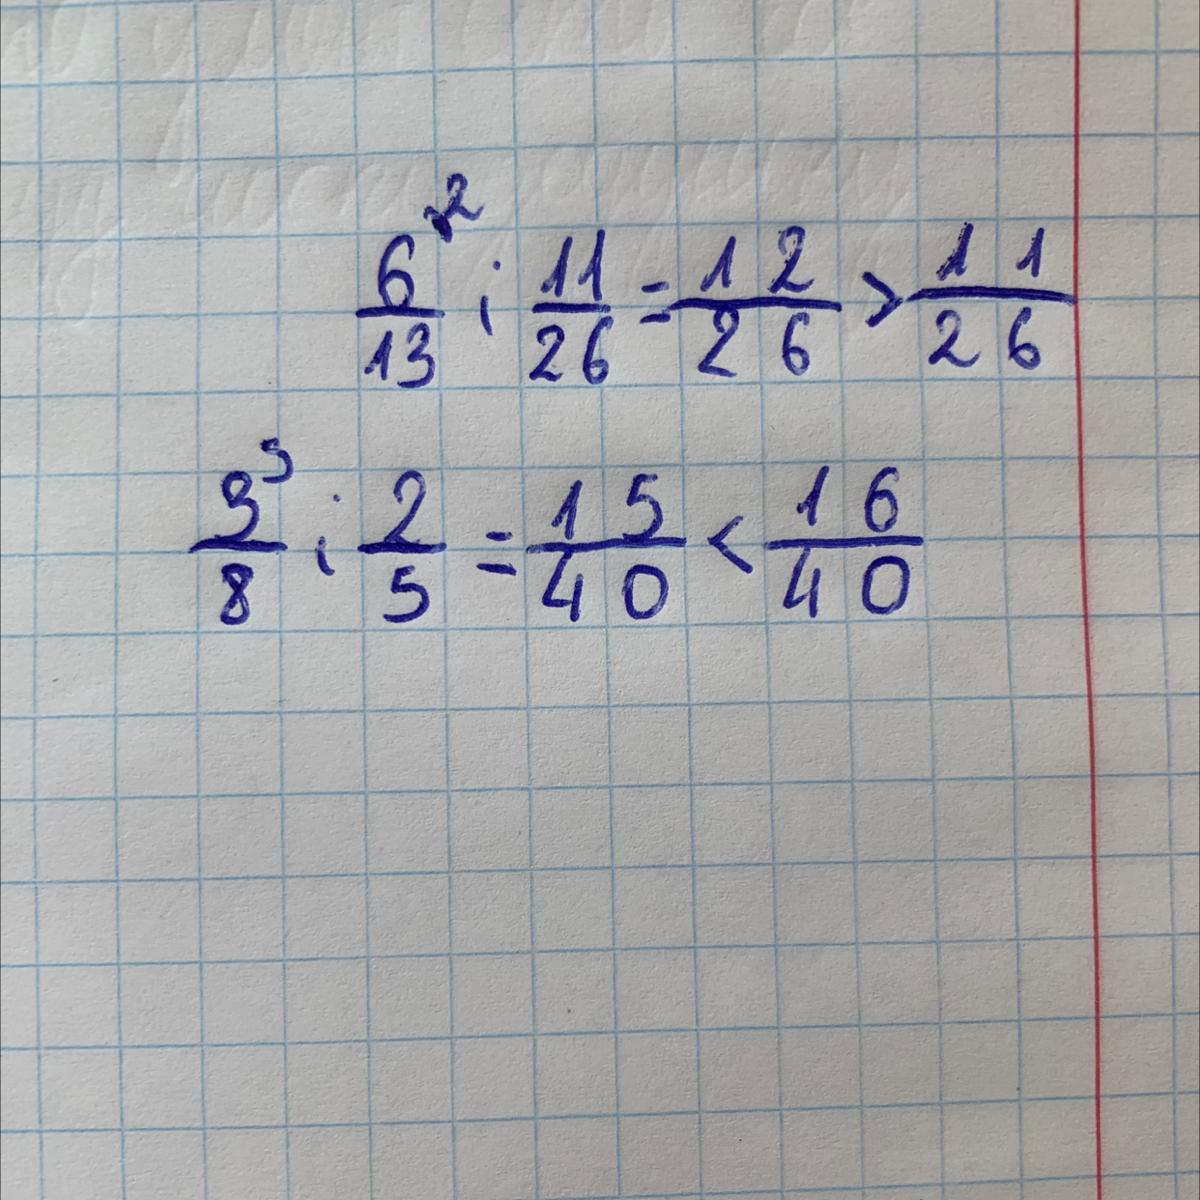 6/13 ^2 ; 11/26 = 12/26 > 11/26
3/8 ^5 ; 2/5 = 15/40 < 16/40